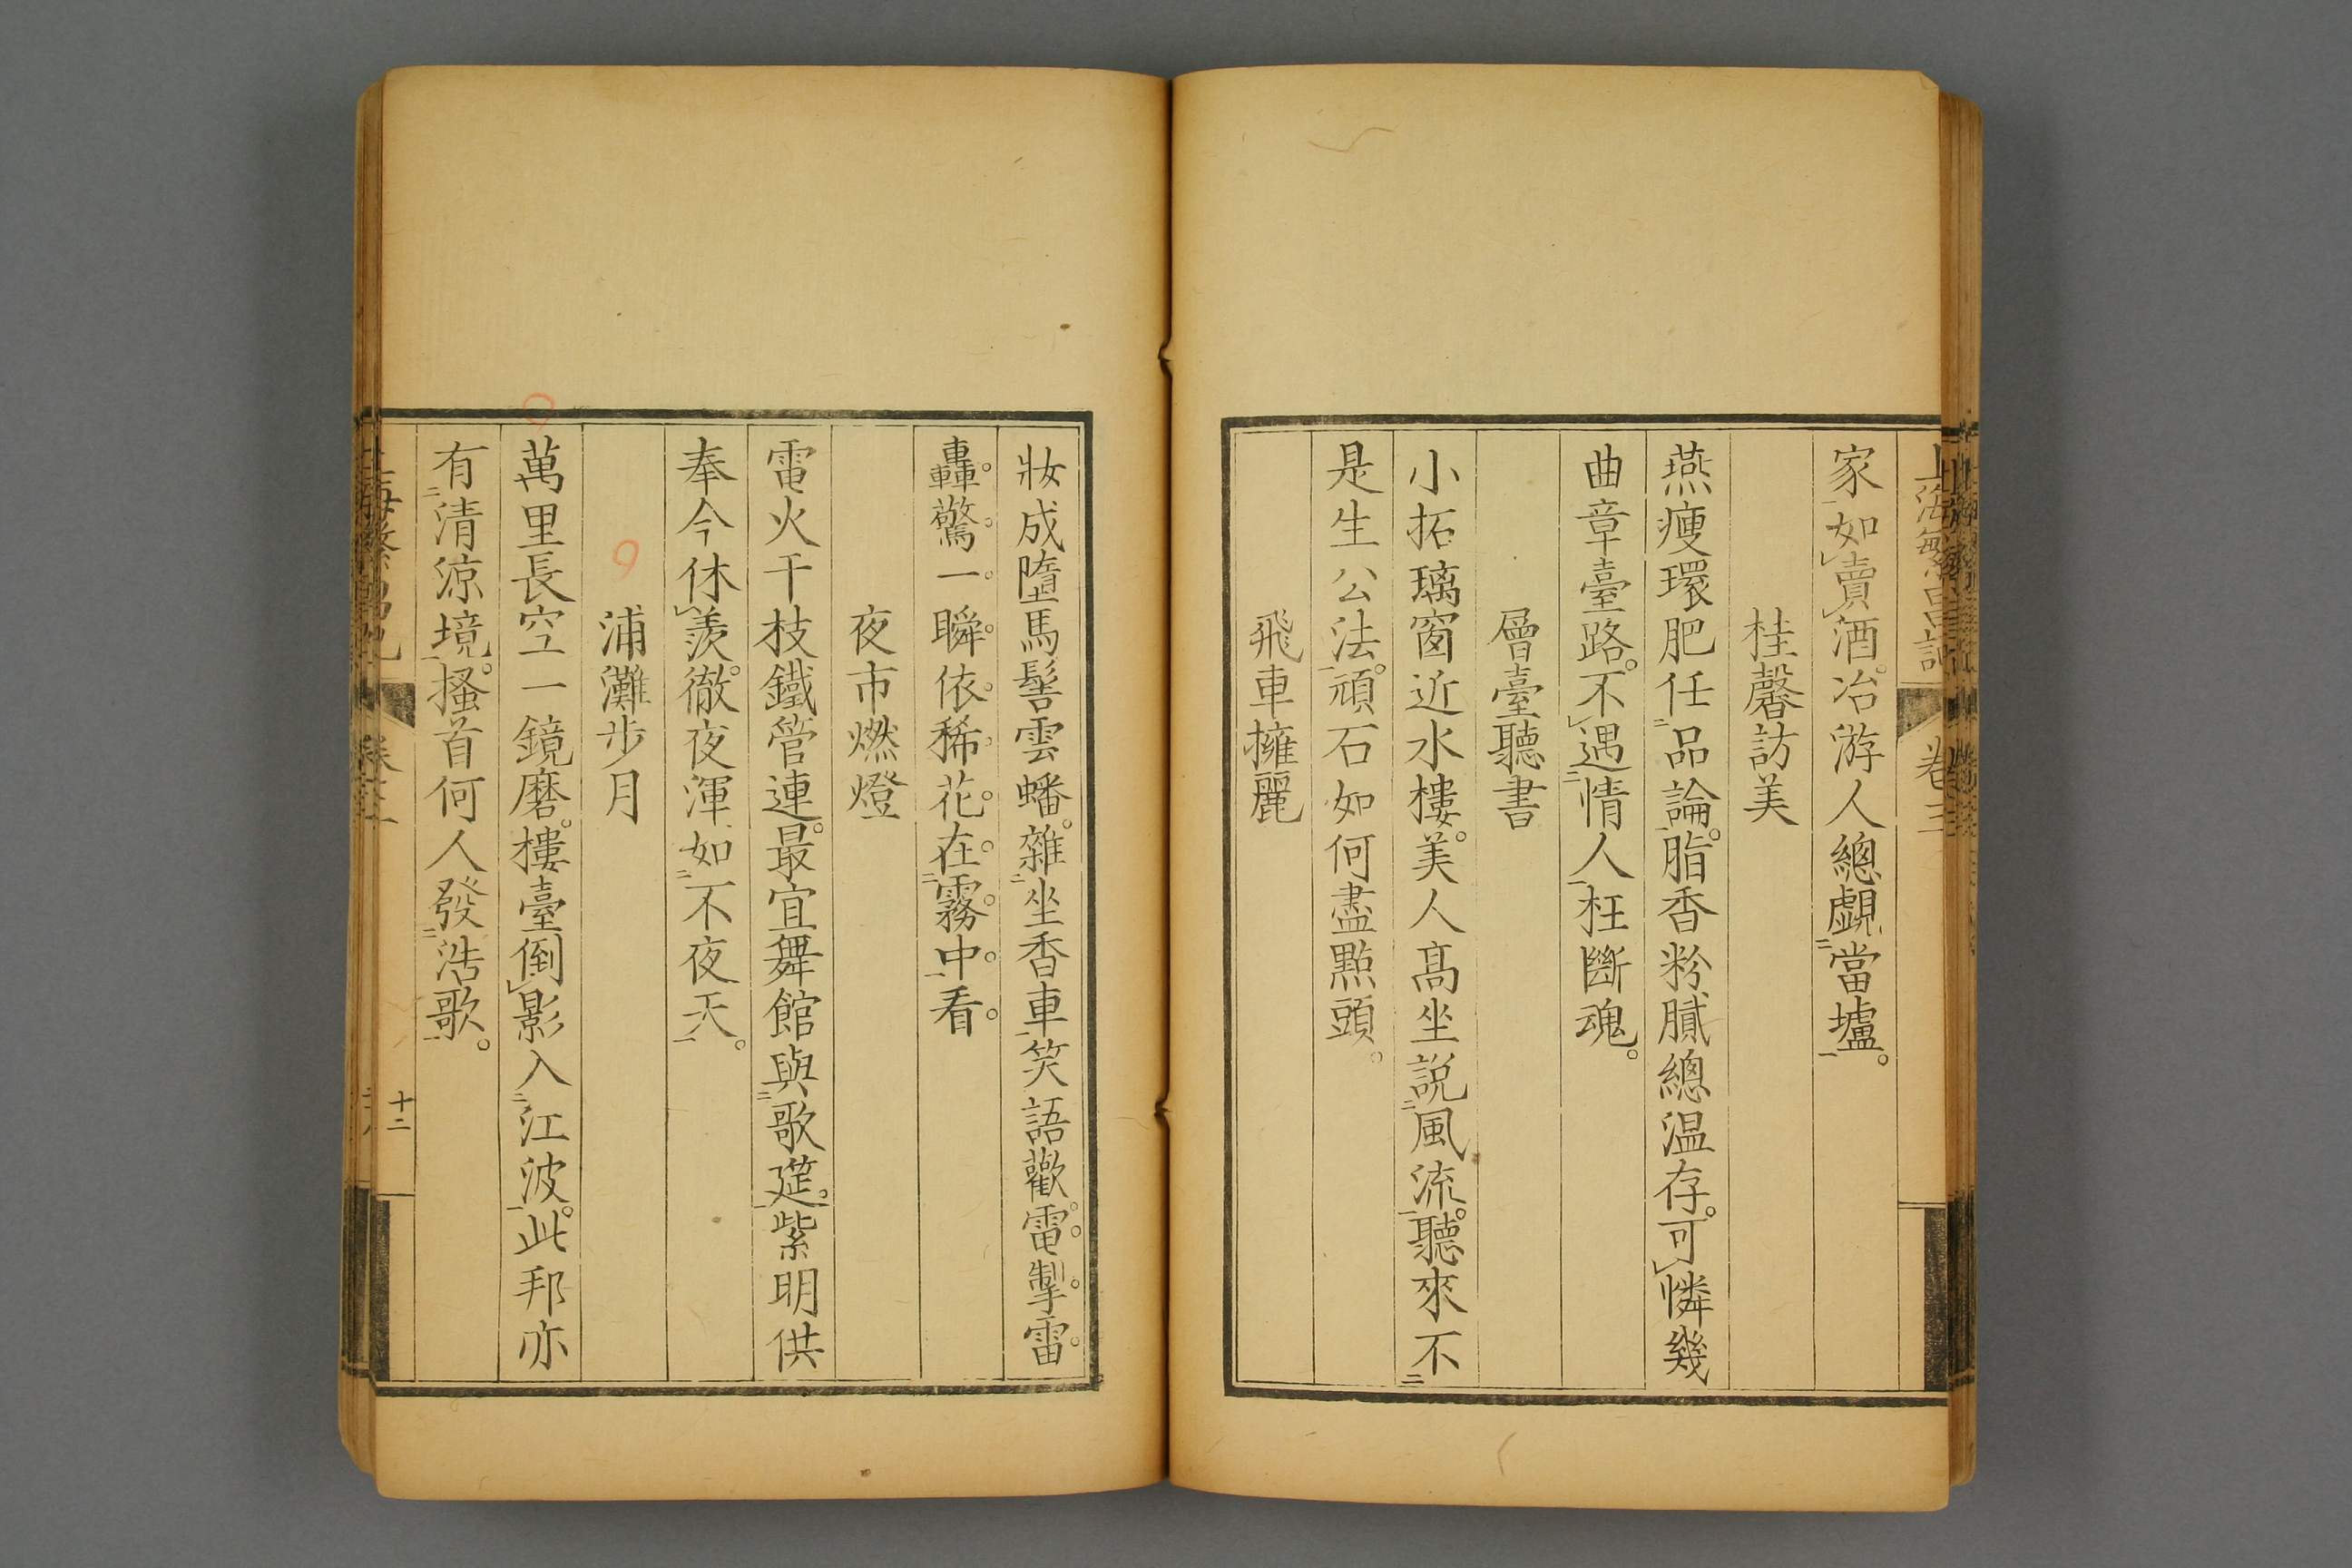 上海繁昌記 卷三
家如賣酒。冶游人總覷當壚。
桂馨訪美
燕瘦環肥任品論。脂香粉膩總温存。可憐幾
曲章臺路。不遇情人枉斷魂。
層臺聽書
小拓璃窗近水樓。美人高坐説風流。聽來不
是生公法。頑石如何盡點頭。
飛車擁麗
妝成墮馬髻雲蟠。雜坐香車笑語歡。電掣雷
轟驚一瞬依稀花在霧中看。
夜市燃燈
電火干枝鐵管連。最宜舞館與歌筵。紫明供
奉今休羨。徹夜渾如不夜天。
浦灘步月
萬里長空一鏡磨。樓臺倒影入江波。此邦亦
有清涼境。搔首何人發浩歌。
十二